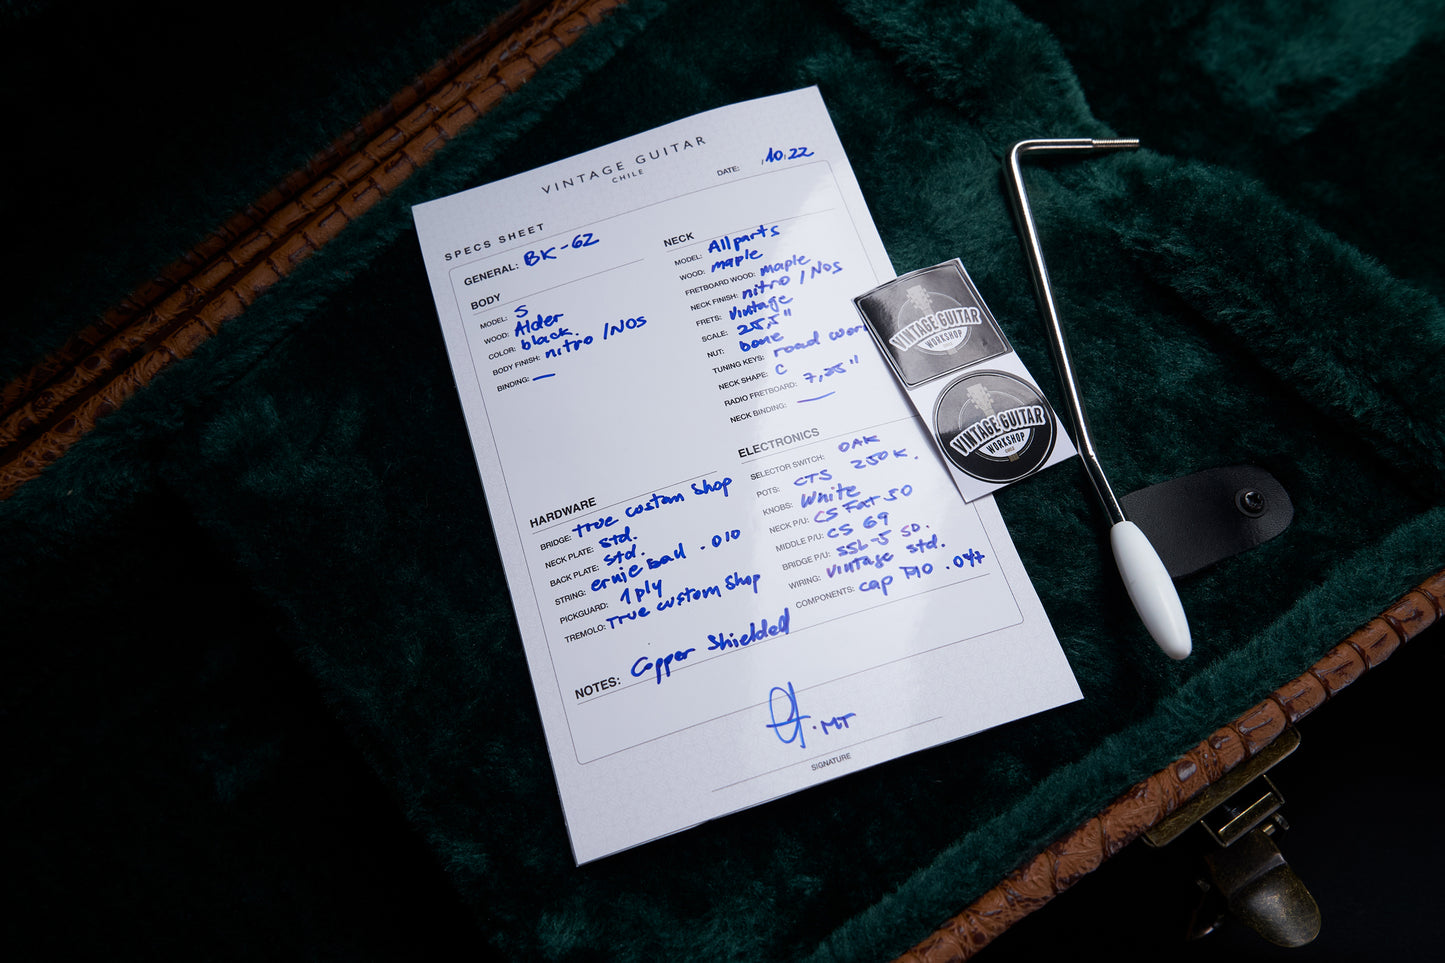 VINTAGE GUITAR
CHILE
DATE: 10.22
SPECS SHEET
GENERAL: BK-62
BODY
MODEL: S
WOOD: Alder
COLOR: black.
BODY FINISH: nitro /NOS
BINDING: —
NECK
MODEL: Allparts
WOOD: maple
FRETBOARD WOOD: maple
NECK FINISH: nitro /NOS
FRETS: Vintage
SCALE: 25,5"
NUT: bone
TUNING KEYS: road
NECK SHAPE: C
RADIO FRETBOARD: 7,25"
NECK BINDING: —
HARDWARE
BRIDGE: true custom shop
NECK PLATE: std.
BACK PLATE: std.
STRING: ernie ball .010
PICKGUARD: 1 ply
TREMOLO: True custom shop
ELECTRONICS
SELECTOR SWITCH: OAK
POTS: CTS 250K.
KNOBS: White
NECK P/U: CS Fat 50
MIDDLE P/U: CS 69
BRIDGE P/U: SSL-5 SD.
WIRING: Vintage std.
COMPONENTS: cap PIO .047
NOTES: Copper Shielded
MT
SIGNATURE
VINTAGE GUITAR
WORKSHOP
VINTAGE GUITAR
WORKSHOP